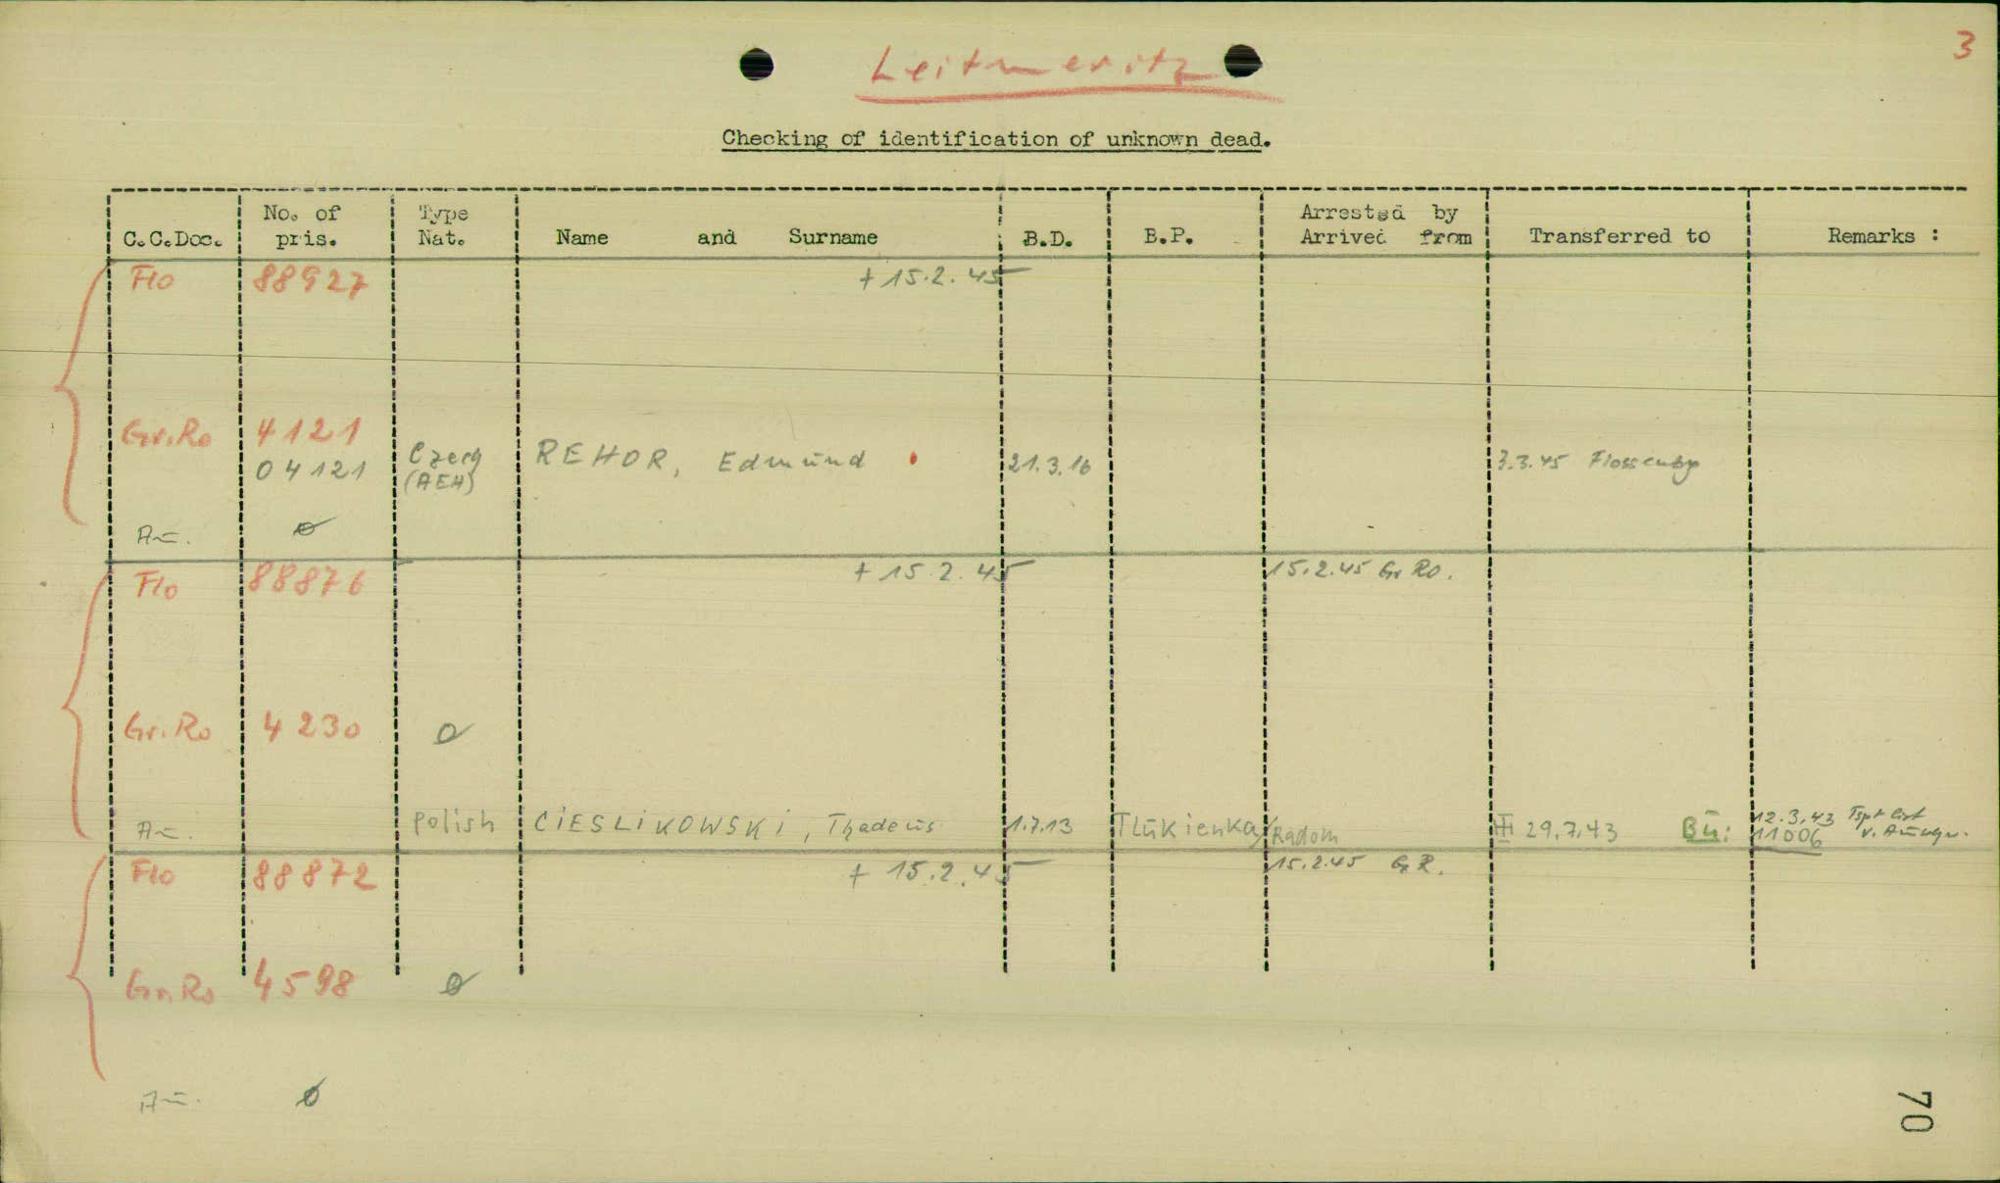 3
Leitmeritz
Checking of identification of unknown dead.
C.C.Doc. No. of pris. Type Nat. Name and Surname B.D. B.P. Arrested by Arrived from Transferred to Remarks :
Flo 88927 + 15.2.45
Gr.Ro 4121
04121 Czech (AEH) REHOR, Edmund 21.3.16 3.3.45 Flossenbg
Au. ø
Flo 88876 + 15.2.45 15.2.45 Gr Ro.
Gr.Ro 4230 ø
Au. Polish CIESLIKOWSKI, Thadeus 1.7.13 Tlukienka/Radom III 29.7.43 Bu: 12.3.43 Tspt list
11006 v.
Flo 88872 + 15.2.45 15.2.45 G.R.
Gr.Ro 4598 ø
Au. ø
70